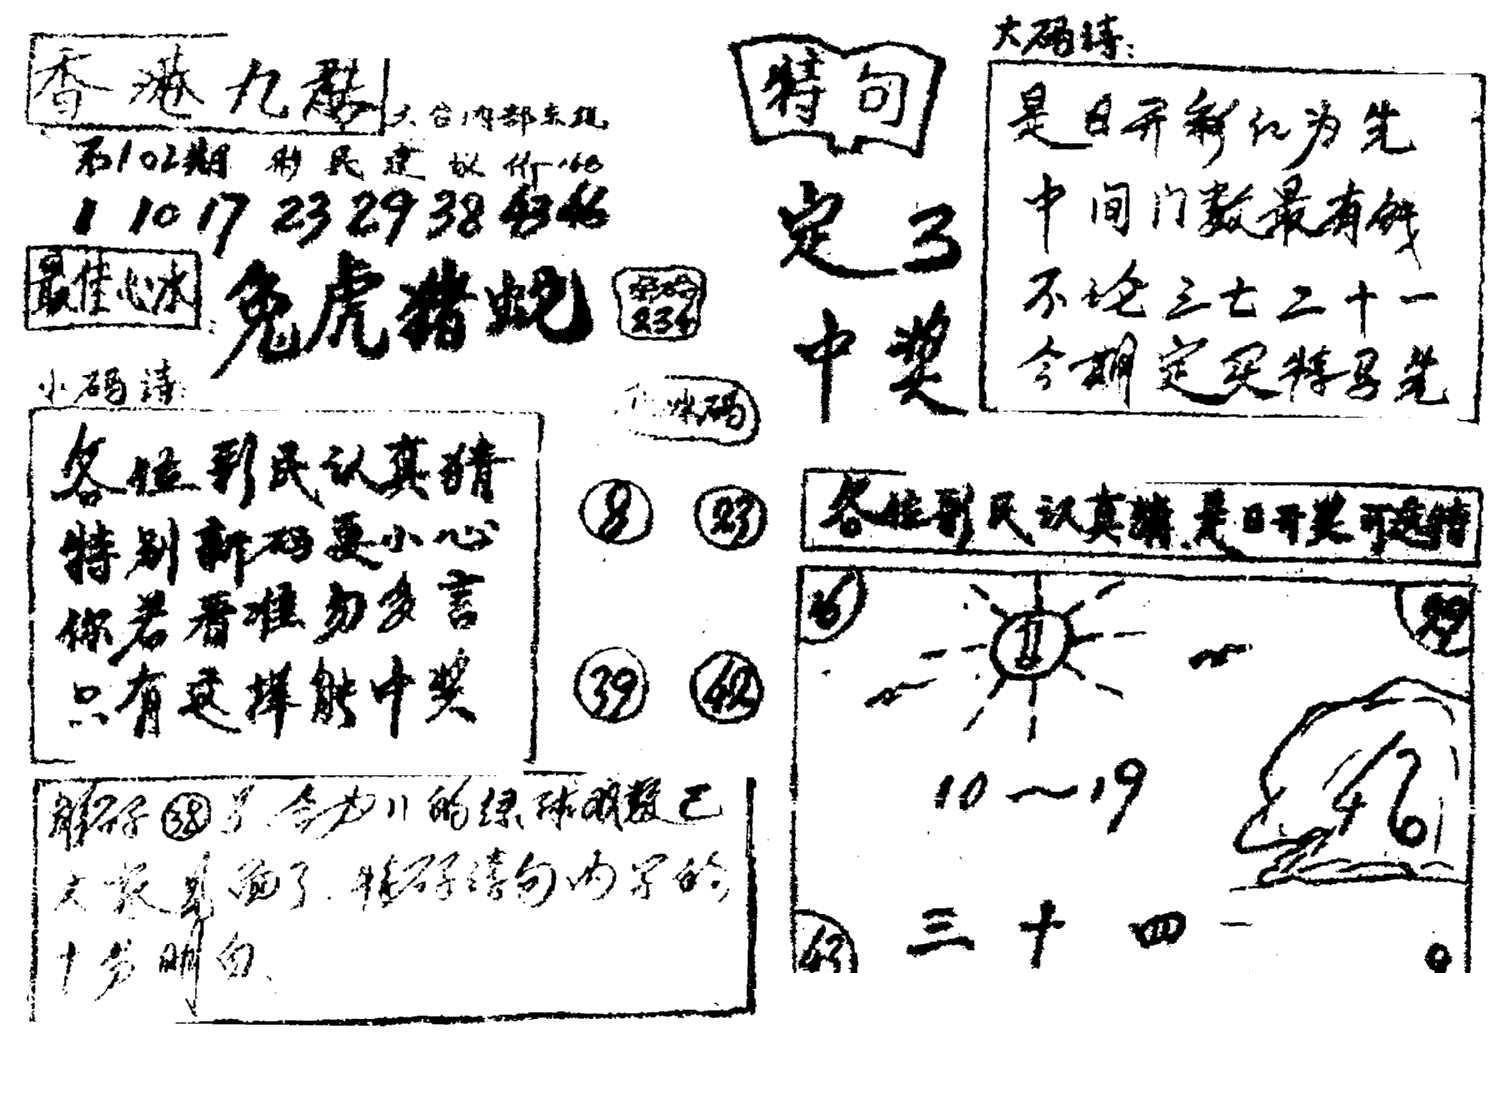 香港九龍
第102期 彩民建议价
1 10 17 23 29 38 43 46
最佳心水
兔虎猪蛇
小码诗:
各位彩民认真猜
特别新码要小心
你若看准勿多言
只有这样能中奖
码
8 23
39 42
解碼 38 的绿球 数已
大家见面了. 特碼詩句内字的
十分明白.
特句
定了
中奖
大码诗:
是日开彩红为先
中间门数最有钱
不论三七二十一
今期定买特号先
各位彩民认真猜.是日开奖可选特
16
11
29
46
10～19
三十四一
43
9